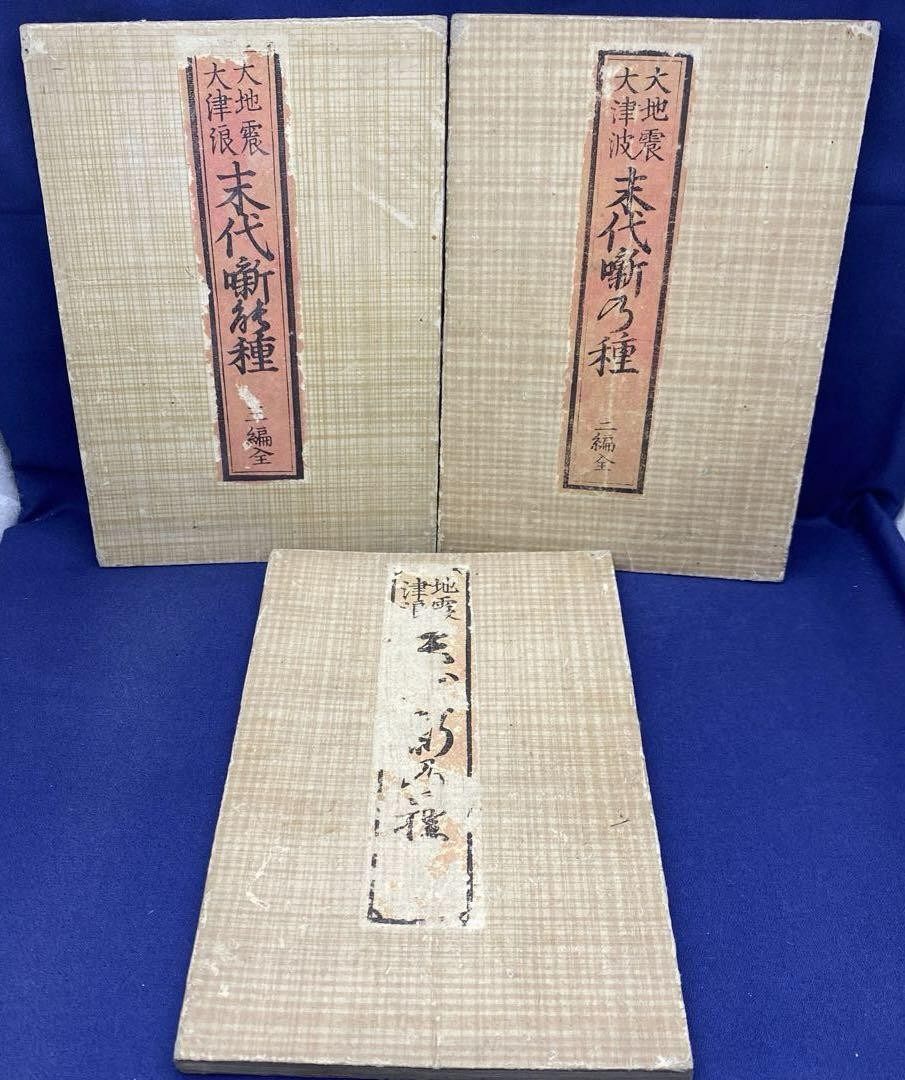 大地震
大津波
末代噺乃種
二編全
大地震
大津浪
末代噺能種
三編全
地震
津浪
種